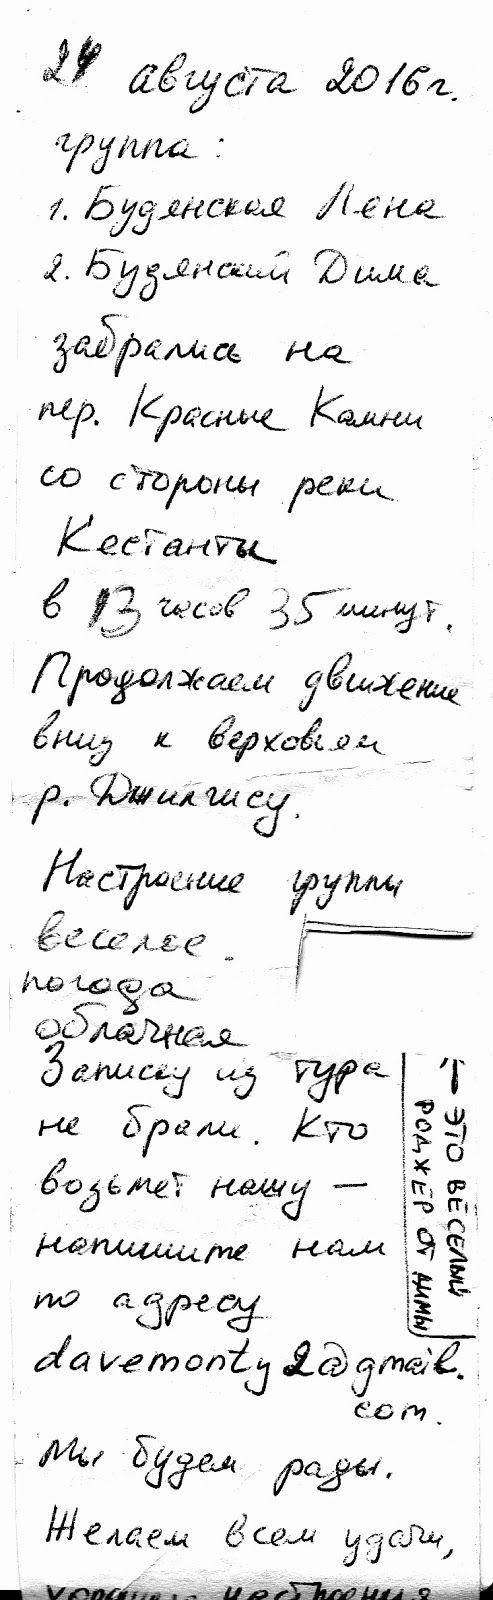 24 августа 2016г.
группа:
1. Будянская Лена
2. Будянский Дима
забрались на
пер. Красные Камни
со стороны реки
Кестанты
в 13 часов 35 минут.
Продолжаем движение
вниз к верховьям
р. Джилгису.
Настроение группы
веселое.
погода
облачная
Записку из тура
не брали. Кто
возьмет нашу —
напишите нам
по адресу
davemonty2@gmail.
com.
↑ ЭТО ВЕСЕЛЫЙ
РОДЖЕР ОТ ДИМЫ
Мы будем рады.
Желаем всем удачи,
хорошего настроения